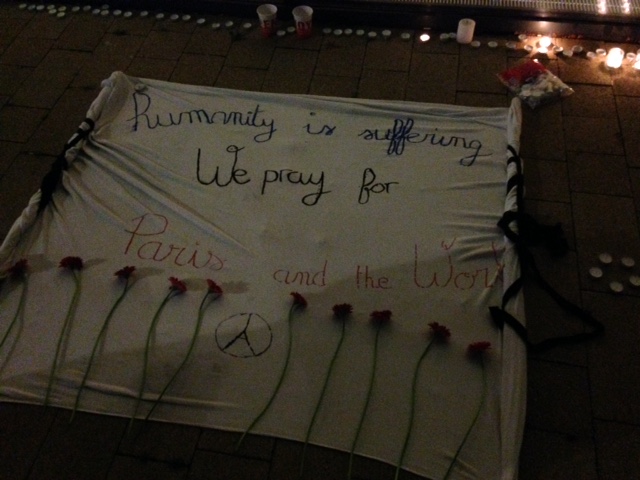 Humanity is suffering
We pray for
Paris and the World